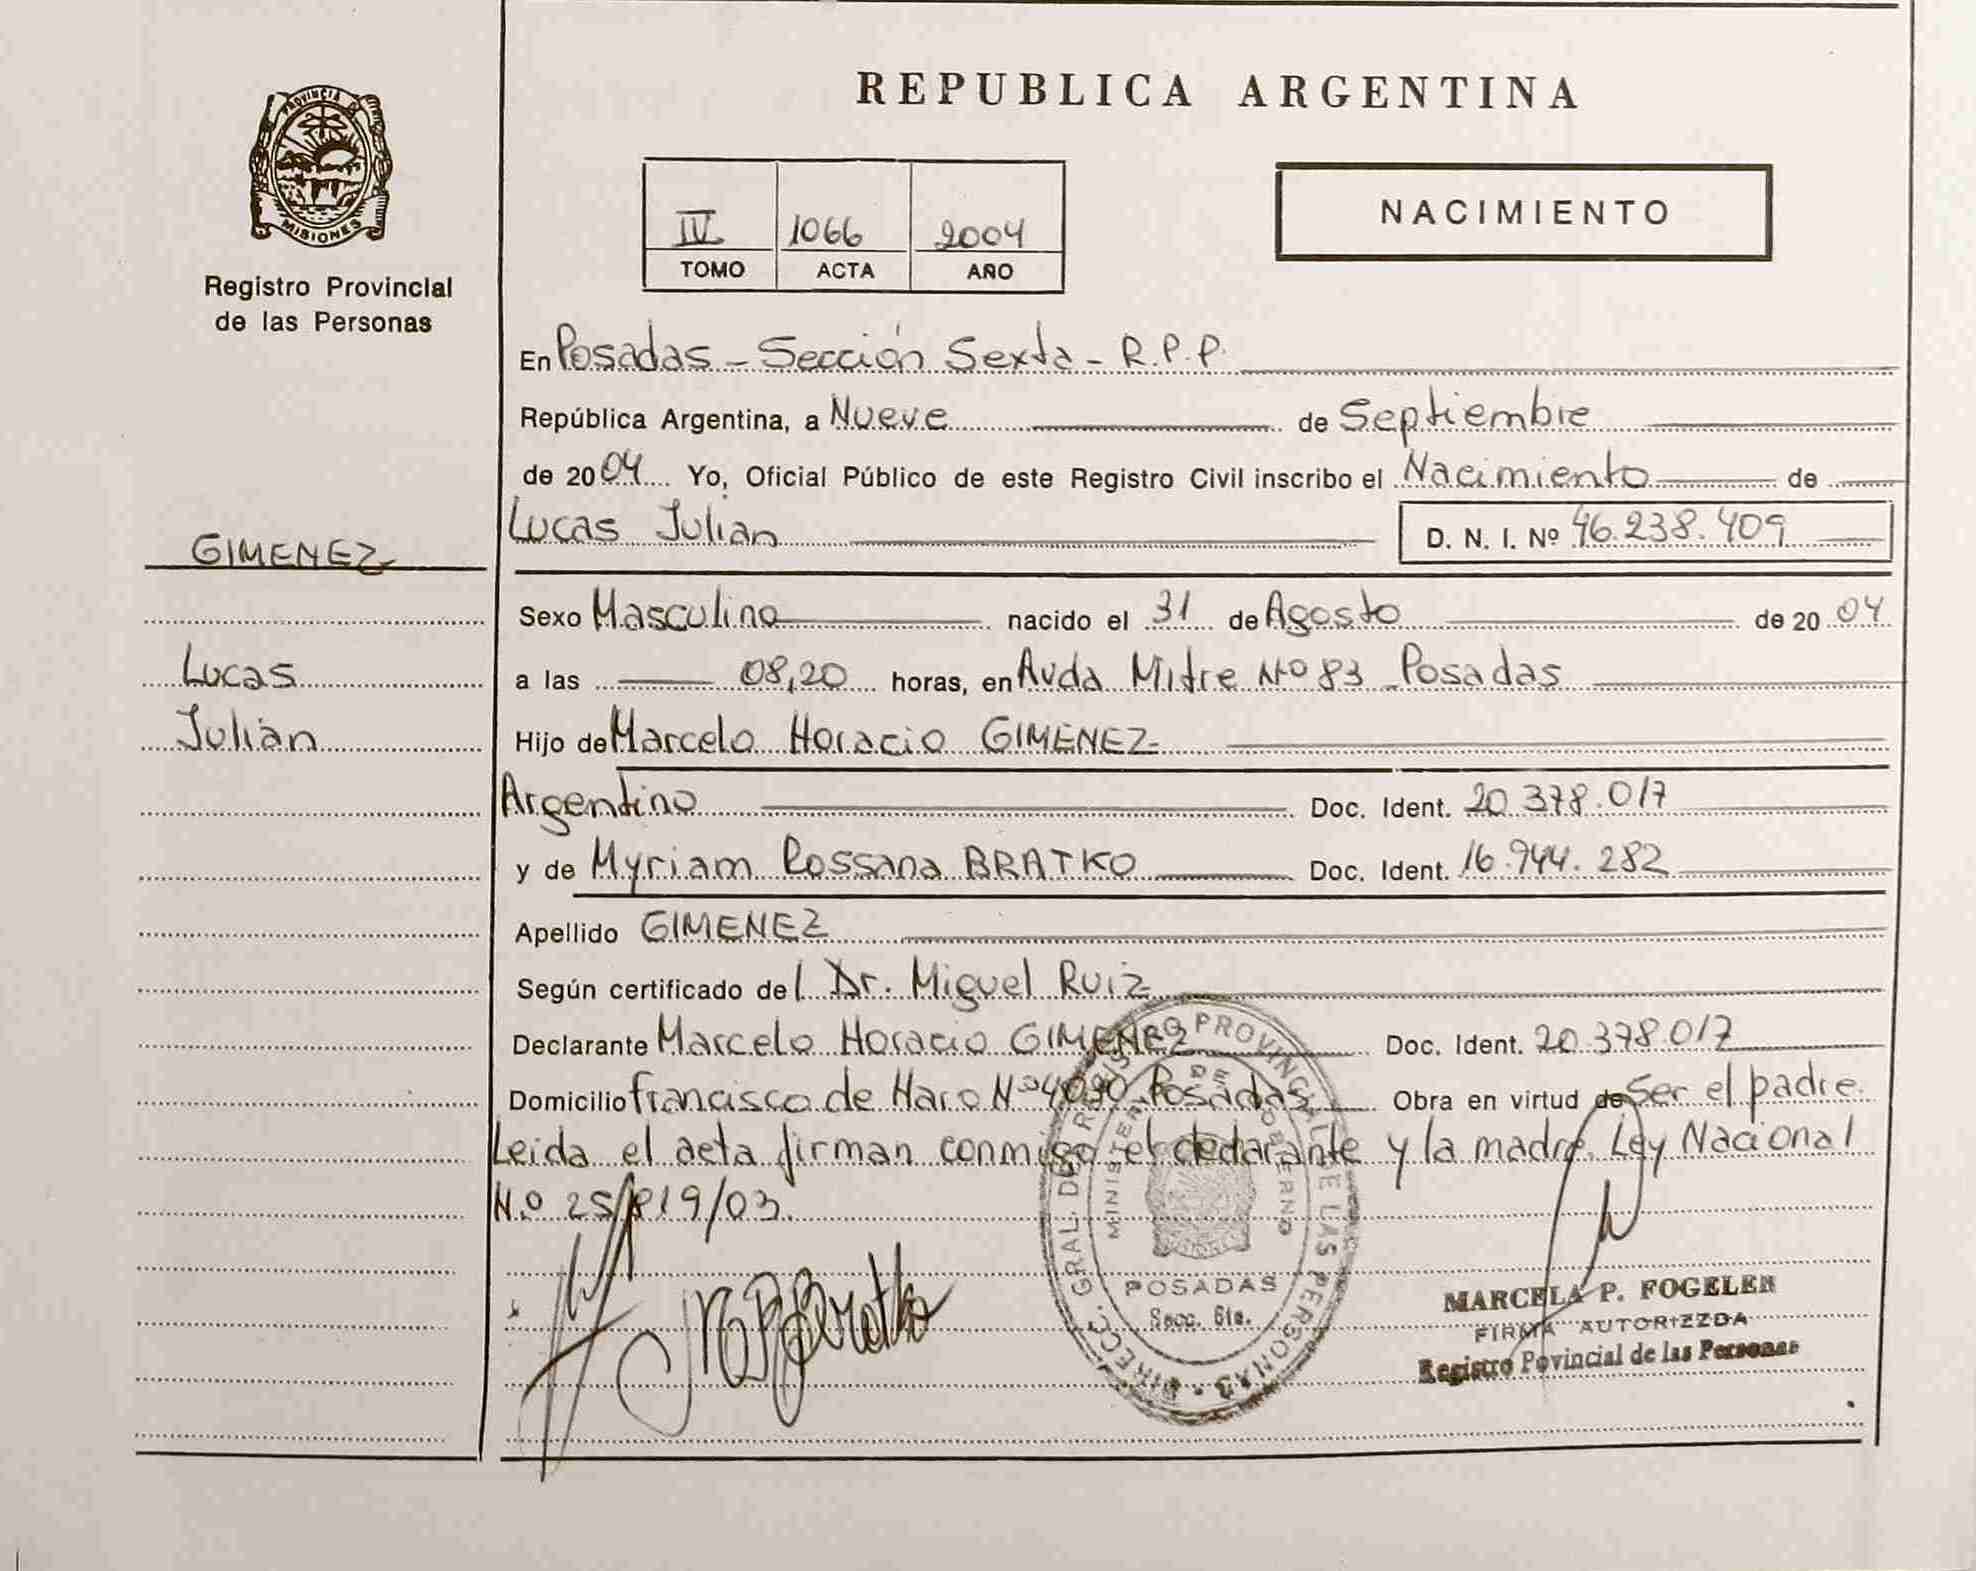 REPUBLICA ARGENTINA
PROVINCIA DE
MISIONES
Registro Provincial
de las Personas
IV 1066 2004
TOMO ACTA AÑO
NACIMIENTO
En Posadas - Sección Sexta - R.P.P.
República Argentina, a Nueve de Septiembre
de 2004 Yo, Oficial Público de este Registro Civil inscribo el Nacimiento de
Lucas Julian D. N. I. Nº 46.238.409
GIMENEZ
Lucas
Julian
Sexo Masculino nacido el 31 de Agosto de 2004
a las 08,20 horas, en Avda Mitre Nº 83 Posadas
Hijo de Marcelo Horacio GIMENEZ
Argentino Doc. Ident. 20.378.017
y de Myriam Rossana BRATKO Doc. Ident. 16.944.282
Apellido GIMENEZ
Según certificado del Dr. Miguel Ruiz
Declarante Marcelo Horacio GIMENEZ Doc. Ident. 20.378.017
Domicilio Francisco de Haro Nº 4090 Posadas Obra en virtud de Ser el padre.
Leida el acta firman conmigo el declarante y la madre. Ley Nacional
N.º 25.819/03.
DIRECC. GRAL. DE REGISTRO PROVINCIAL DE LAS PERSONAS
MINISTERIO DE GOBIERNO
POSADAS
Secc. 6ta.
MARCELA P. FOGELER
FIRMA AUTORIZZDA
Registro Povincial de las Personas